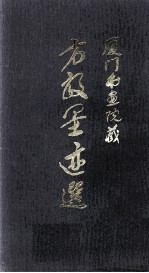 厦门书画院藏
方毅墨迹選